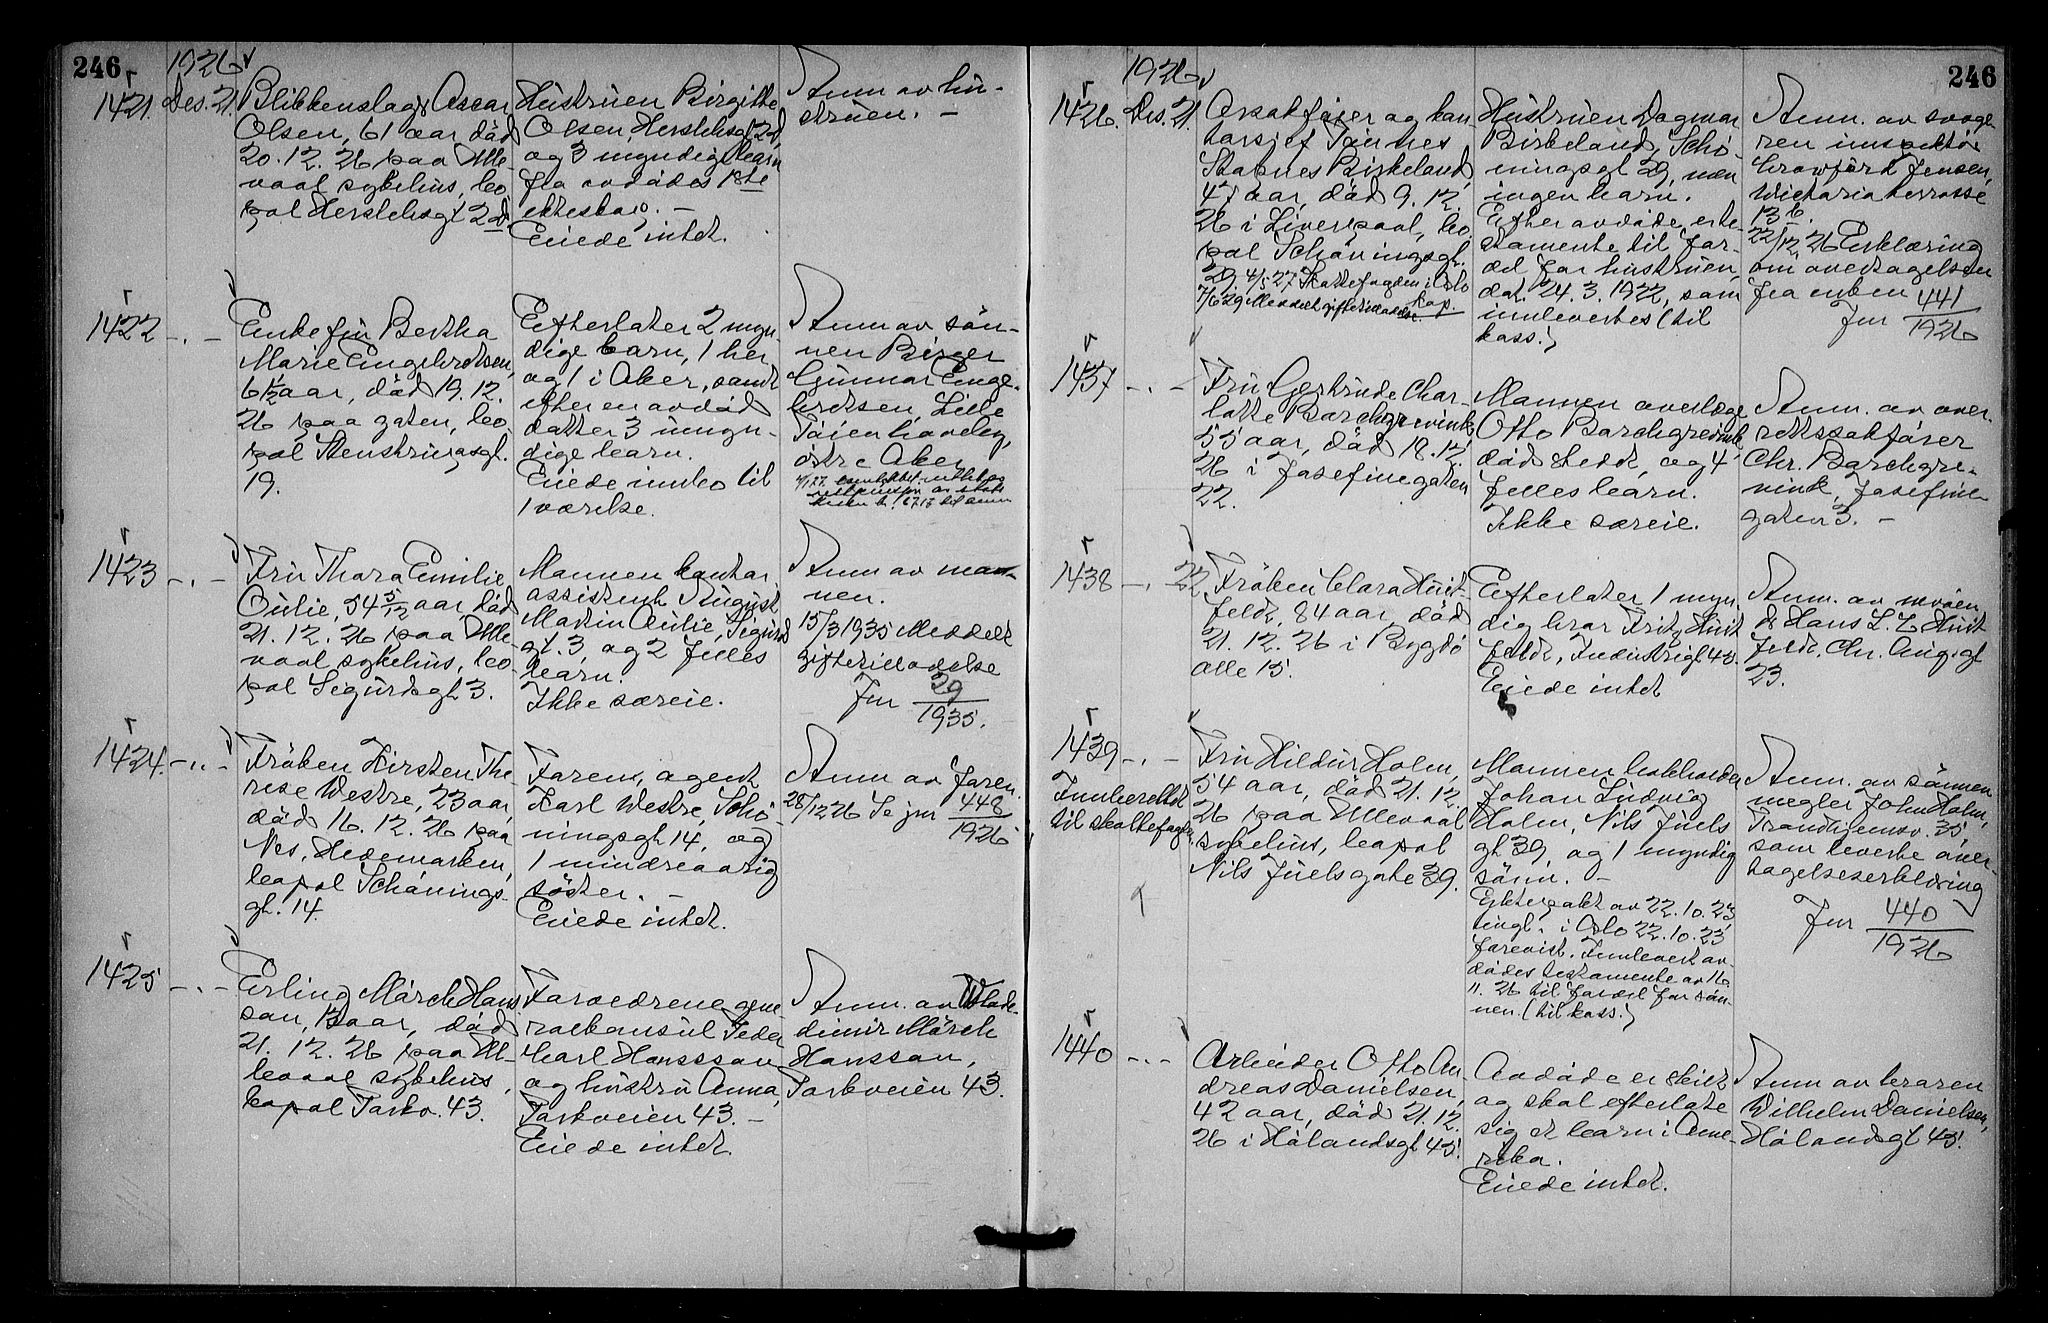 246
1926
1421. Des. 21.
Blikkenslager Oscar
Olsen, 61 aar, död
20.12.26 paa Ulle-
vaal sykehus, bo-
pæl Herslebsgt 2d
Hustruen Birgitte
Olsen Herslebsgt 2d,
og 3 myndige barn
fra avdödes 1ste
ekteskap. -
Eiede intet.
Anm av hu-
struen. -
1422 -.-
Enkefru Bertha
Marie Engebretsen,
61 1/2 aar, död 19.12.
26 paa gaten, bo-
pæl Stenstrupsgt.
19.
Efterlater 2 myn-
dige barn, 1 her
og 1 i Aker, samt
efter en avdöd
datter 3 umyn-
dige barn.
Eiede innbo til
1 værelse.
Anm av sön-
nen Birger
Gunnar Enge-
bretsen, Lille
Töien
östre Aker
1423 -.-
Fru Thora Emilie
Aulie, 54 5/12 aar, död
21.12.26 paa Ulle-
vaal sykehus, bo-
pæl Sigurdsgt 3.
Mannen kontor
assistent August
Martin Aulie, Sigurds
gt. 3 og 2 felles
barn.
Ikke særeie.
Anm av man-
nen.
15/3 1935 Meddelt
gifterilladelse
Jnr 29/1935.
1424. -.-
Fröken Kirsten The-
rese Westre, 23 aar,
död 16.12.26 paa
Nes, Hedemarken,
bopæl Schönings-
gt. 14
Faren, agent
Karl Westre, Schö-
ningsgt 14, og
1 mindreaarig
söster. -
Eiede intet.
Anm av faren.
28/12 26 Se jnr 448/1926
1425 -.-
Erling Mörch Hans
son, 13 aar, död
21.12.26 paa Ul-
levaal sykehus,
bopæl Parkv. 43.
Forældrene gene
ralkonsul Peder
Carl Hansson
og hustru Anna,
Parkveien 43. -
Eiede intet.
Anm. av Wla-
dimir Mörch
Hansson,
Parkveien 43.
246
1926
1426. Des. 21.
Orsakförer og kon-
torsjef Tönnes
Stabnes Birkeland,
47 aar, död 9.12.
26 i Liverpool, bo
pæl Schöningsgt.
29. 4/5 27 Skattefogden i Oslo kap.
7/6 29 Meddelt gifterilladelse.
Hustruen Dagmar
Birkeland, Schö-
ningsgt 29, men
ingen barn.
Efter avdöde, er te-
stamente til for-
del for hustruen,
dat. 24.3.1922, som
innlevertes (til
kass.)
Anm. av svoge-
ren inspektör
Crawfurd Jensen,
Victoria terrasse
13 b.
22/12 26 Erklæring
om overtagelsen
fra enken
Jnr 441/1926
1437 -.-
Fru Gertrude Char-
lotte Borchgrevink,
55 aar, död 18.12.
26 i Josefinegaten
22.
Mannen overlæge
Otto Borchgrevink,
död sted, og 4
felles barn.
Ikke særeie.
Anm. av over-
rettssakförer
Chr. Borchgre-
vink, Josefine
gaten 3. -
1438 -. 22.
Fröken Clara Huit-
feldt, 84 aar, död
21.12.26 i Bygdö
alle 15.
Efterlater 1 myn
dig bror Fritz Huit
feldt, Industrigt 45.
Eiede intet
Anm. av nevöen
Hans L. Z Huit
feldt, Chr. Aug.s gt
23.
1439 -.-
Innberettet
til skattefogden
Fru Hildur Holm,
54 aar, död 21.12.
26 paa Ullevaal
sykehus, bopæl
Nils Juels gate 39.
Mannen bokholder
Johan Ludvig
Holm, Nils Juels
gt 39, og 1 myndig
sönn. -
Ektepakt av 22.10.23
tingl. i Oslo 22.10.23
forevist. Innlevert av-
dödes testamente av 16
11.26 til fordel for sön-
nen. (til kass.)
Anm. av sönnen
megler John Holm,
Trondhjemsv. 35,
som leverte over-
tagelseserklæring
Jnr 440/1926
1440 -.-
Arbeider Otto An
dreas Danielsen,
42 aar, död 21.12.
26 i Hölandsgt 45.
Avdöde er skilt
og skal efterlate
sig et barn i Ame-
rika.
Eiede intet.
Anm av broren
Wilhelm Danielsen,
Hölandsgt 45.